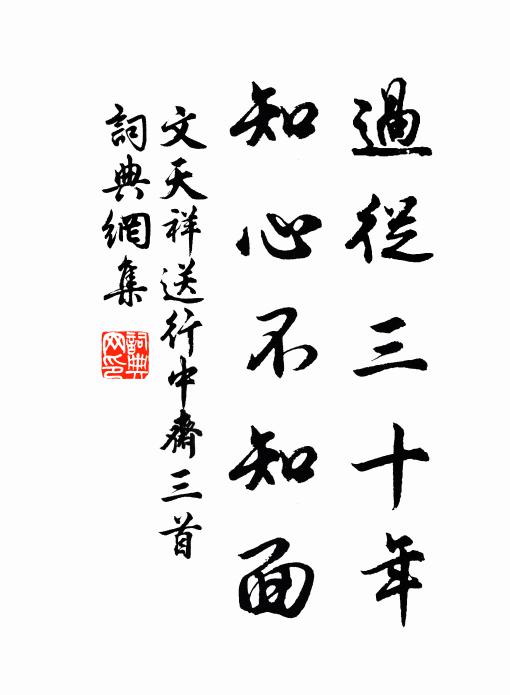 過從三十年
知心不知面
文天祥送行中齋三首
詞典網集
詞典网印